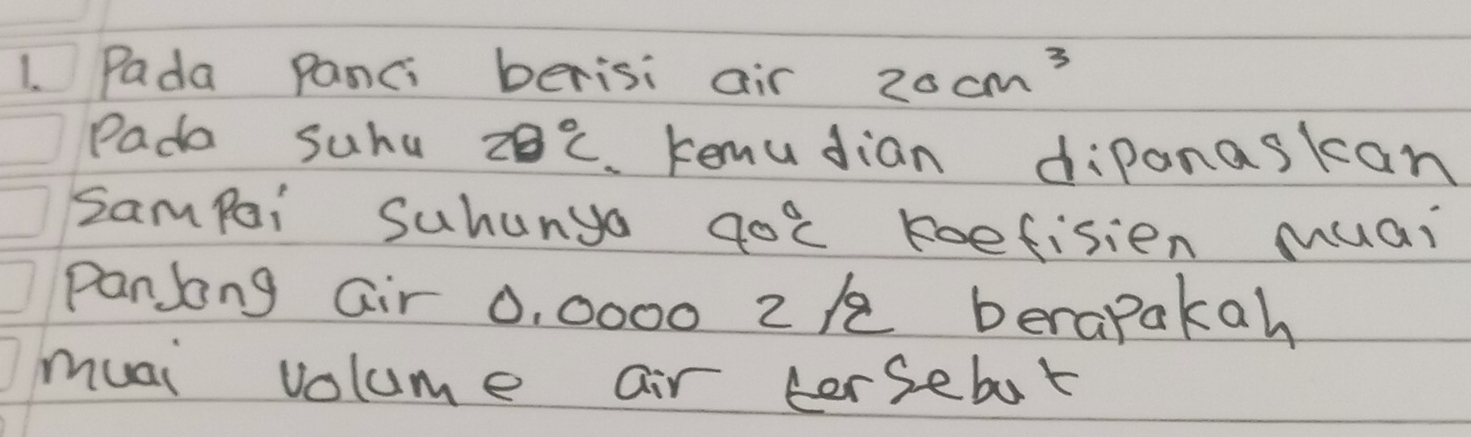 1. Pada panci berisi air 20 cm³
Pada suhu 20°C. kemudian dipanaskan
Sampai suhunya 90°C koefisien muai
Panjang air 0.0000 2 /°C berapakah
muai volume air tersebut